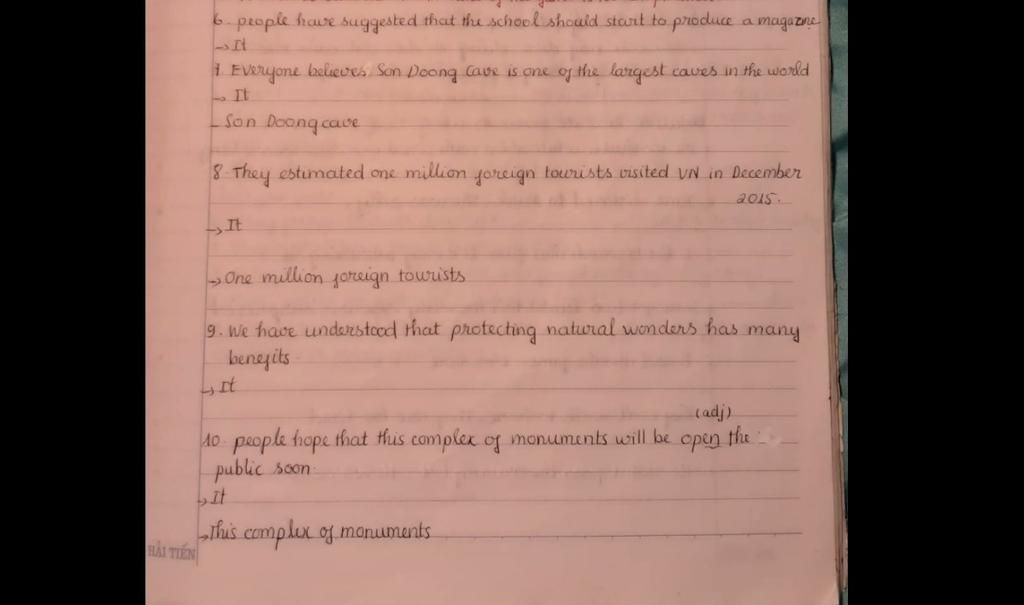 6. people have suggested that the school should start to produce a magazine
→ It
7. Everyone believes Son Doong Cave is one of the largest caves in the world
→ It
- Son Doong cave
8. They estimated one million foreign tourists visited VN in December
2015.
→ It
→ One million foreign tourists
9. We have understood that protecting natural wonders has many
benefits
→ It
(adj)
10. people hope that this complex of monuments will be open the
public soon
→ It
→ This complex of monuments
HẢI TIẾN